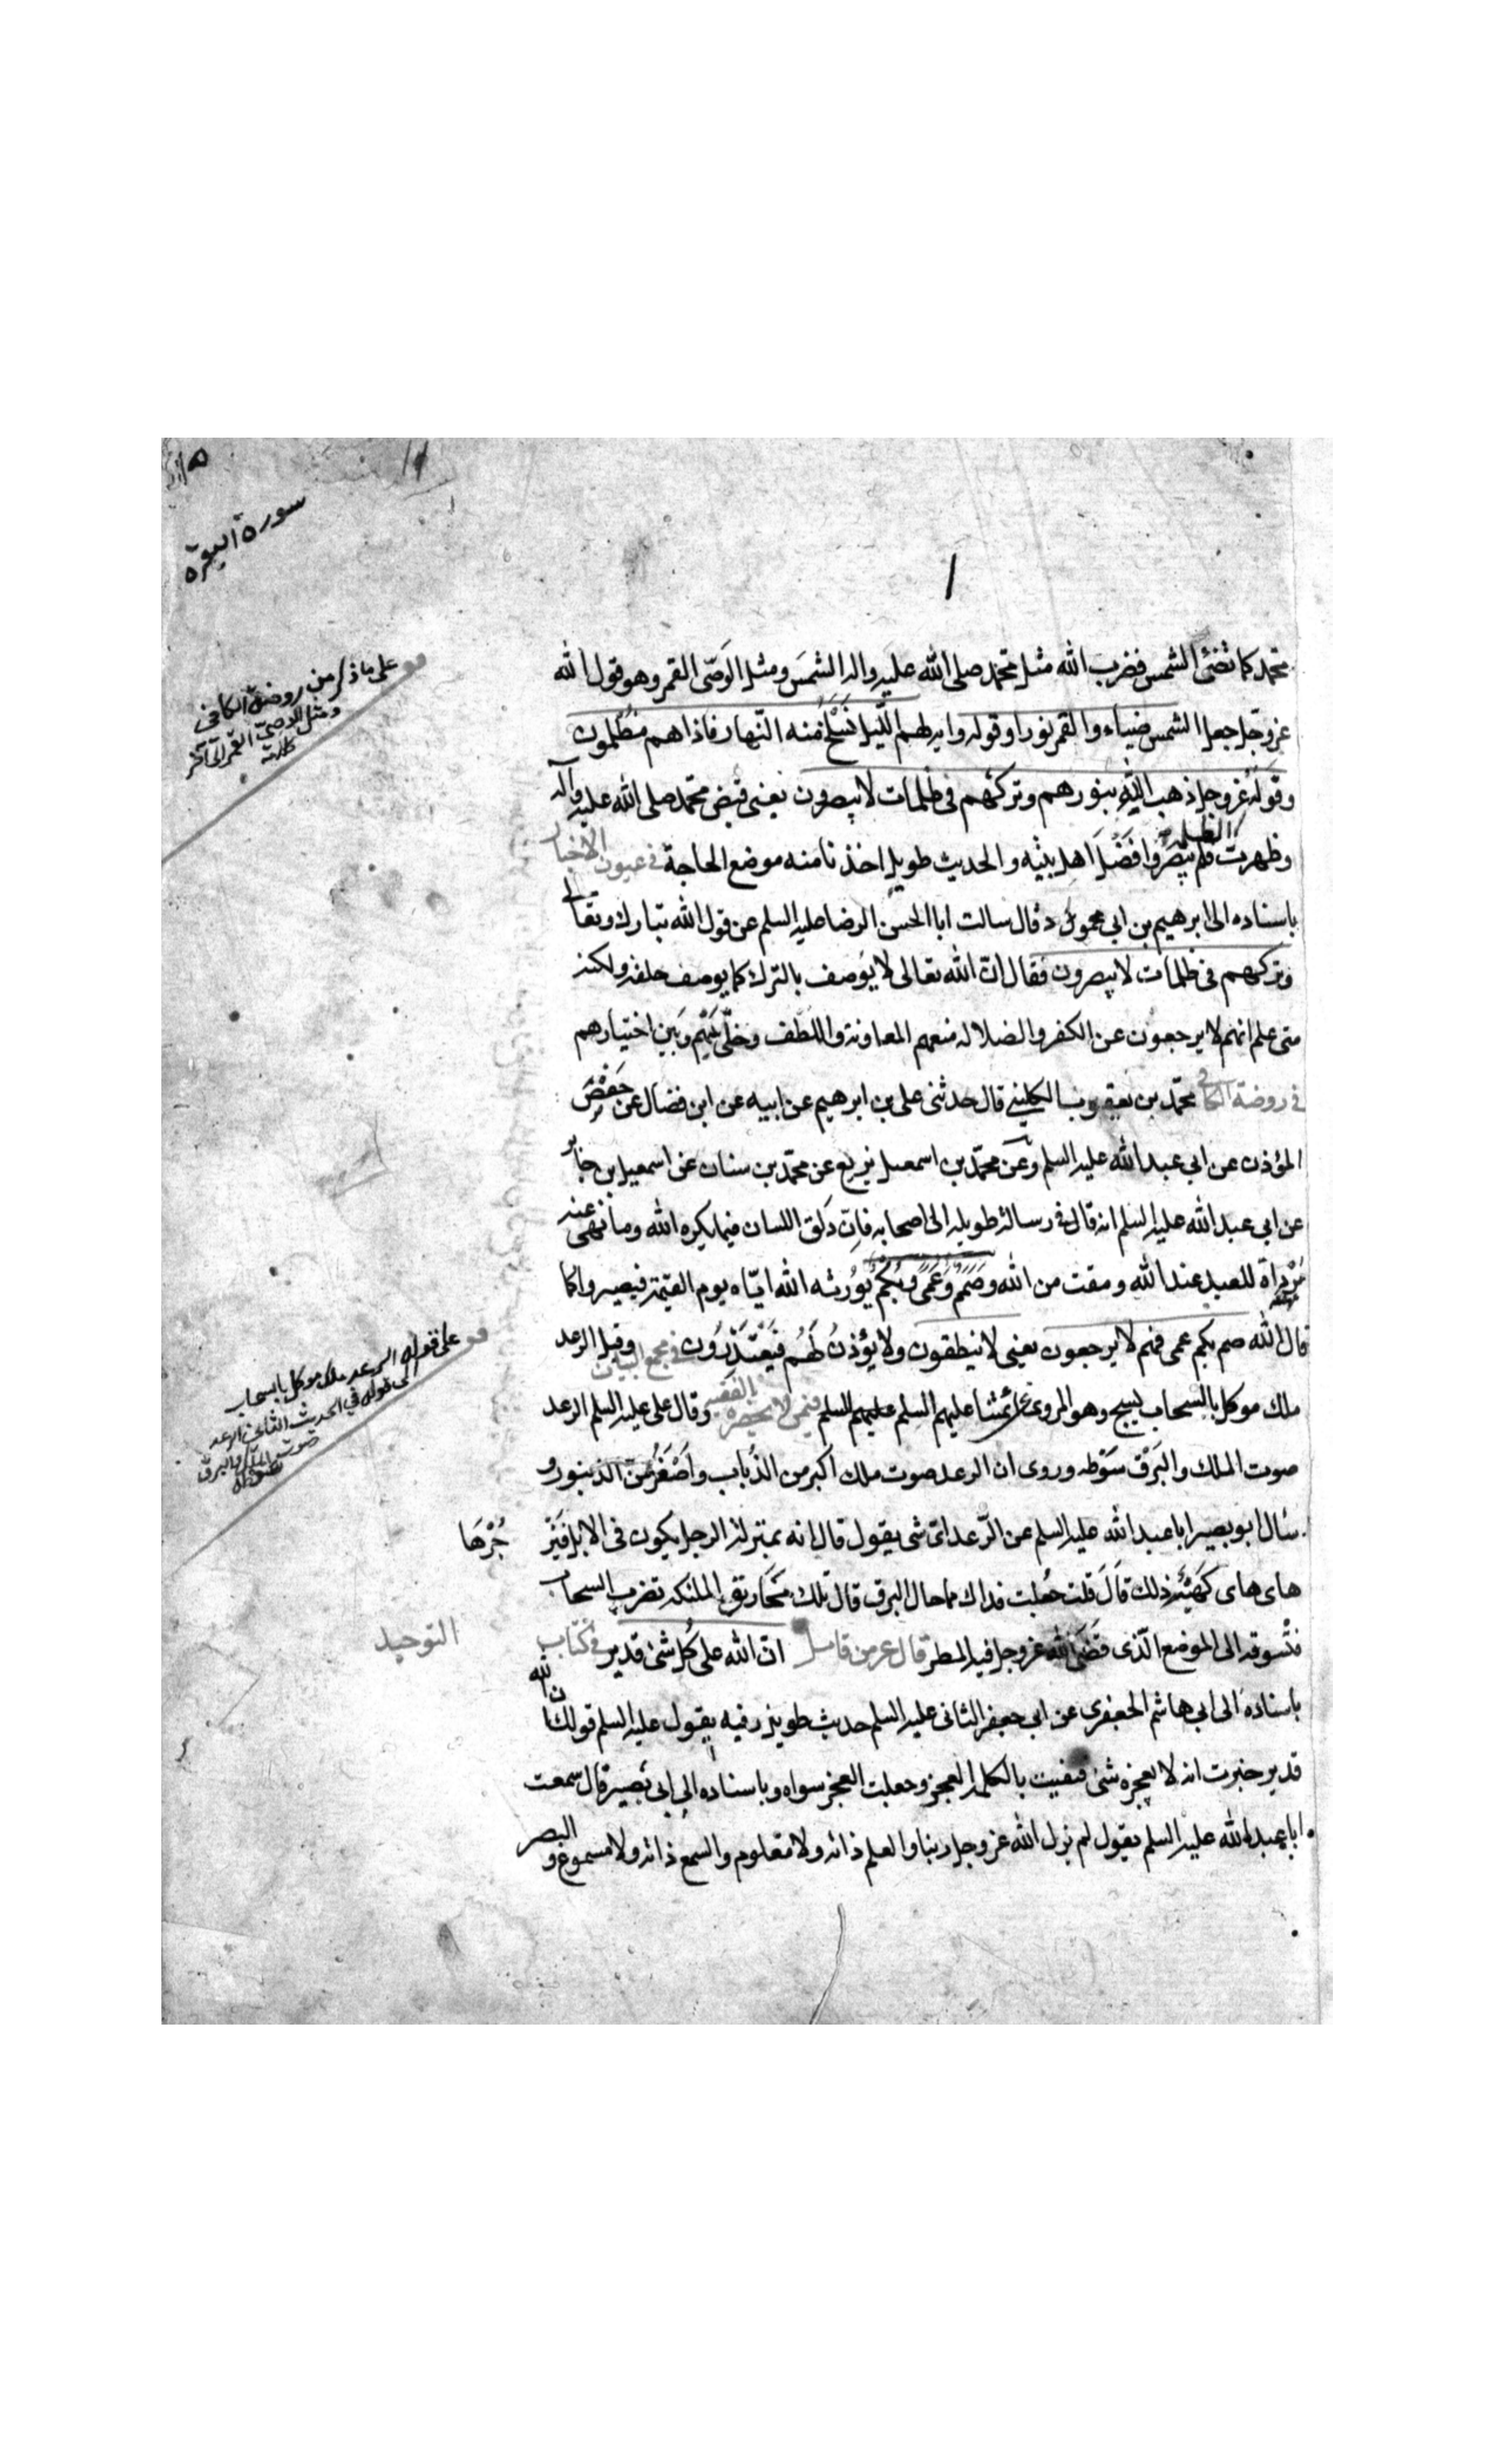 سورة البقرة
محمد كما تضئ الشمس فضرب الله مثل محمد صلى الله عليه واله الشمس ومثل الوصى القمر وهو قول الله
عز وجل جعل الشمس ضياء والقمر نورا وقوله واية لهم الليل نسلخ منه النهار فاذا هم مظلمون
وقوله عز وجل ذهب الله بنورهم وتركهم فى ظلمات لا يبصرون يعنى قبض محمد صلى الله عليه وآله
وظهرت الظلمة فلم يبصروا فضل اهل بيته والحديث طويل اخذنا منه موضع الحاجة فى عيون الاخبار
باسناده الى ابرهيم بن ابى محمود قال سالت ابا الحسن الرضا عليه السلم عن قول الله تبارك وتعالى
وتركهم فى ظلمات لا يبصرون فقال ان الله تعالى لا يوصف بالترك كما يوصف خلقه ولكنه
متى علم انهم لا يرجعون عن الكفر والضلالة منعهم المعاونة واللطف وخلى بينهم وبين اختيارهم
فى روضة الكافى محمد بن يعقوب الكلينى قال حدثنى على بن ابرهيم عن ابيه عن ابن فضال عن حفص
المؤذن عن ابى عبد الله عليه السلم وعن محمد بن اسمعيل بن بزيع عن محمد بن سنان عن اسمعيل بن جابر
عن ابى عبد الله عليه السلم انه قال فى رسالة طويلة الى اصحابه فان ذلق اللسان فيما يكره الله وما نهى عنه
مرداة للعبد عند الله ومقت من الله وصم وعمى وبكم يورثه الله اياه يوم القيمة فيصيروا كما
قال الله صم بكم عمى فهم لا يرجعون يعنى لا ينطقون ولا يؤذن لهم فيعتذرون فى مجمع البيان وقيل الرعد
ملك موكل بالسحاب يسبح وهو المروى عن ائمتنا عليهم السلم عليهم السلم فيمن لا يحضره الفقيه وقال على عليه السلم الرعد
صوت الملك والبرق سوطه وروى ان الرعد صوت ملك اكبر من الذباب واصغر من الزنبور و
سئال ابو بصير ابا عبد الله عليه السلم عن الرعد اى شى يقول قال انه بمنزلة الرجل يكون فى الابل فيزجرها
هاى هاى كهيئة ذلك قال قلت جعلت فداك فما حال البرق قال تلك مخاريق الملئكة تضرب السحاب
فتسوقه الى الموضع الذى قضى الله عز وجل فيه المطر قال عز من قايل ان الله على كل شئ قدير فى كتاب التوحيد
باسناده الى ابى هاشم الجعفرى عن ابى جعفر الثانى عليه السلم حديث طويل وفيه يقول عليه السلم قولك ان الله
قدير خبرت انه لا يعجزه شئ فنفيت بالكلمة العجز وجعلت العجز سواه وباسناده الى ابى بصير قال سمعت
ابا عبد الله عليه السلم يقول لم يزل الله عز وجل ربنا والعلم ذاته ولا معلوم والسمع ذاته ولا مسموع والبصر
على ما ذكر من روضة الكافى
ومثل الوصى القمر الى آخر
كلامه
على قوله الرعد ملك موكل بالسحاب
الى قوله فى الحديث الثانى الرعد
صوت الملك والبرق
سوطه